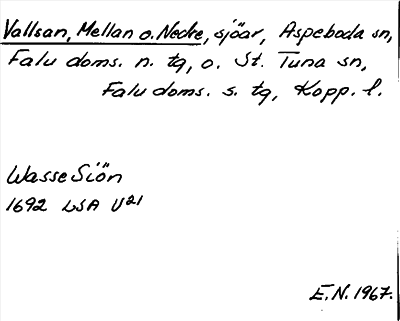 Vallsan, Mellan o. Nedre, sjöar, Aspeboda sn,
Falu doms. n. tg, o. St. Tuna sn,
Falu doms. s. tg, Kopp. l.
Wasse Siön
1692 LSA U21
E.N. 1967.